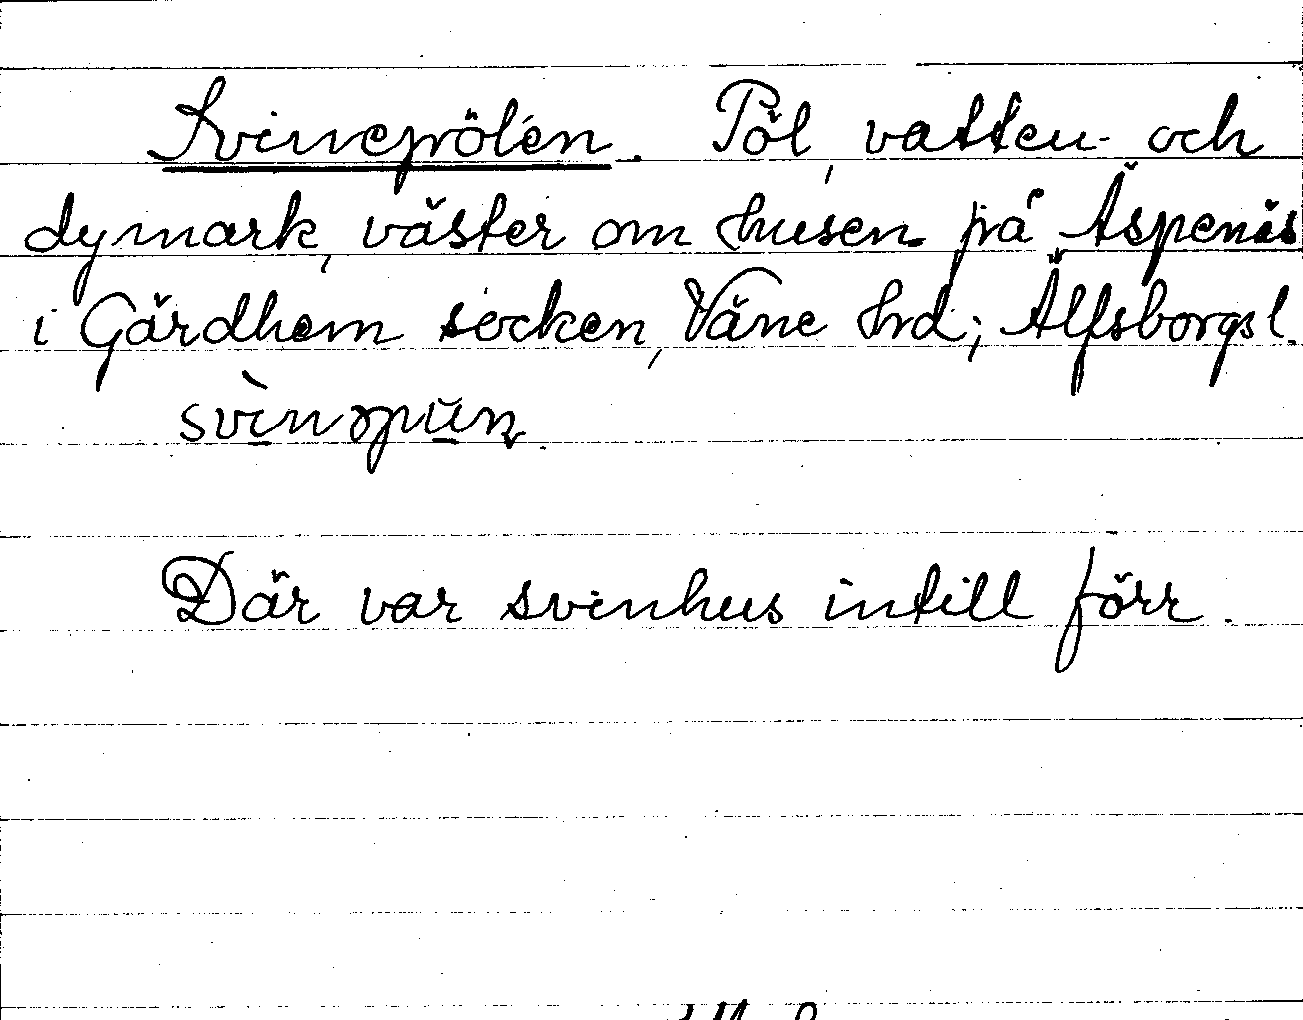 Svinepölen. Pöl, vatten- och
dymark, väster om husen på Åspenäs
i Gärdhem socken, Väne hrd; Älfsborgs l.
Där var svinhus intill förr.